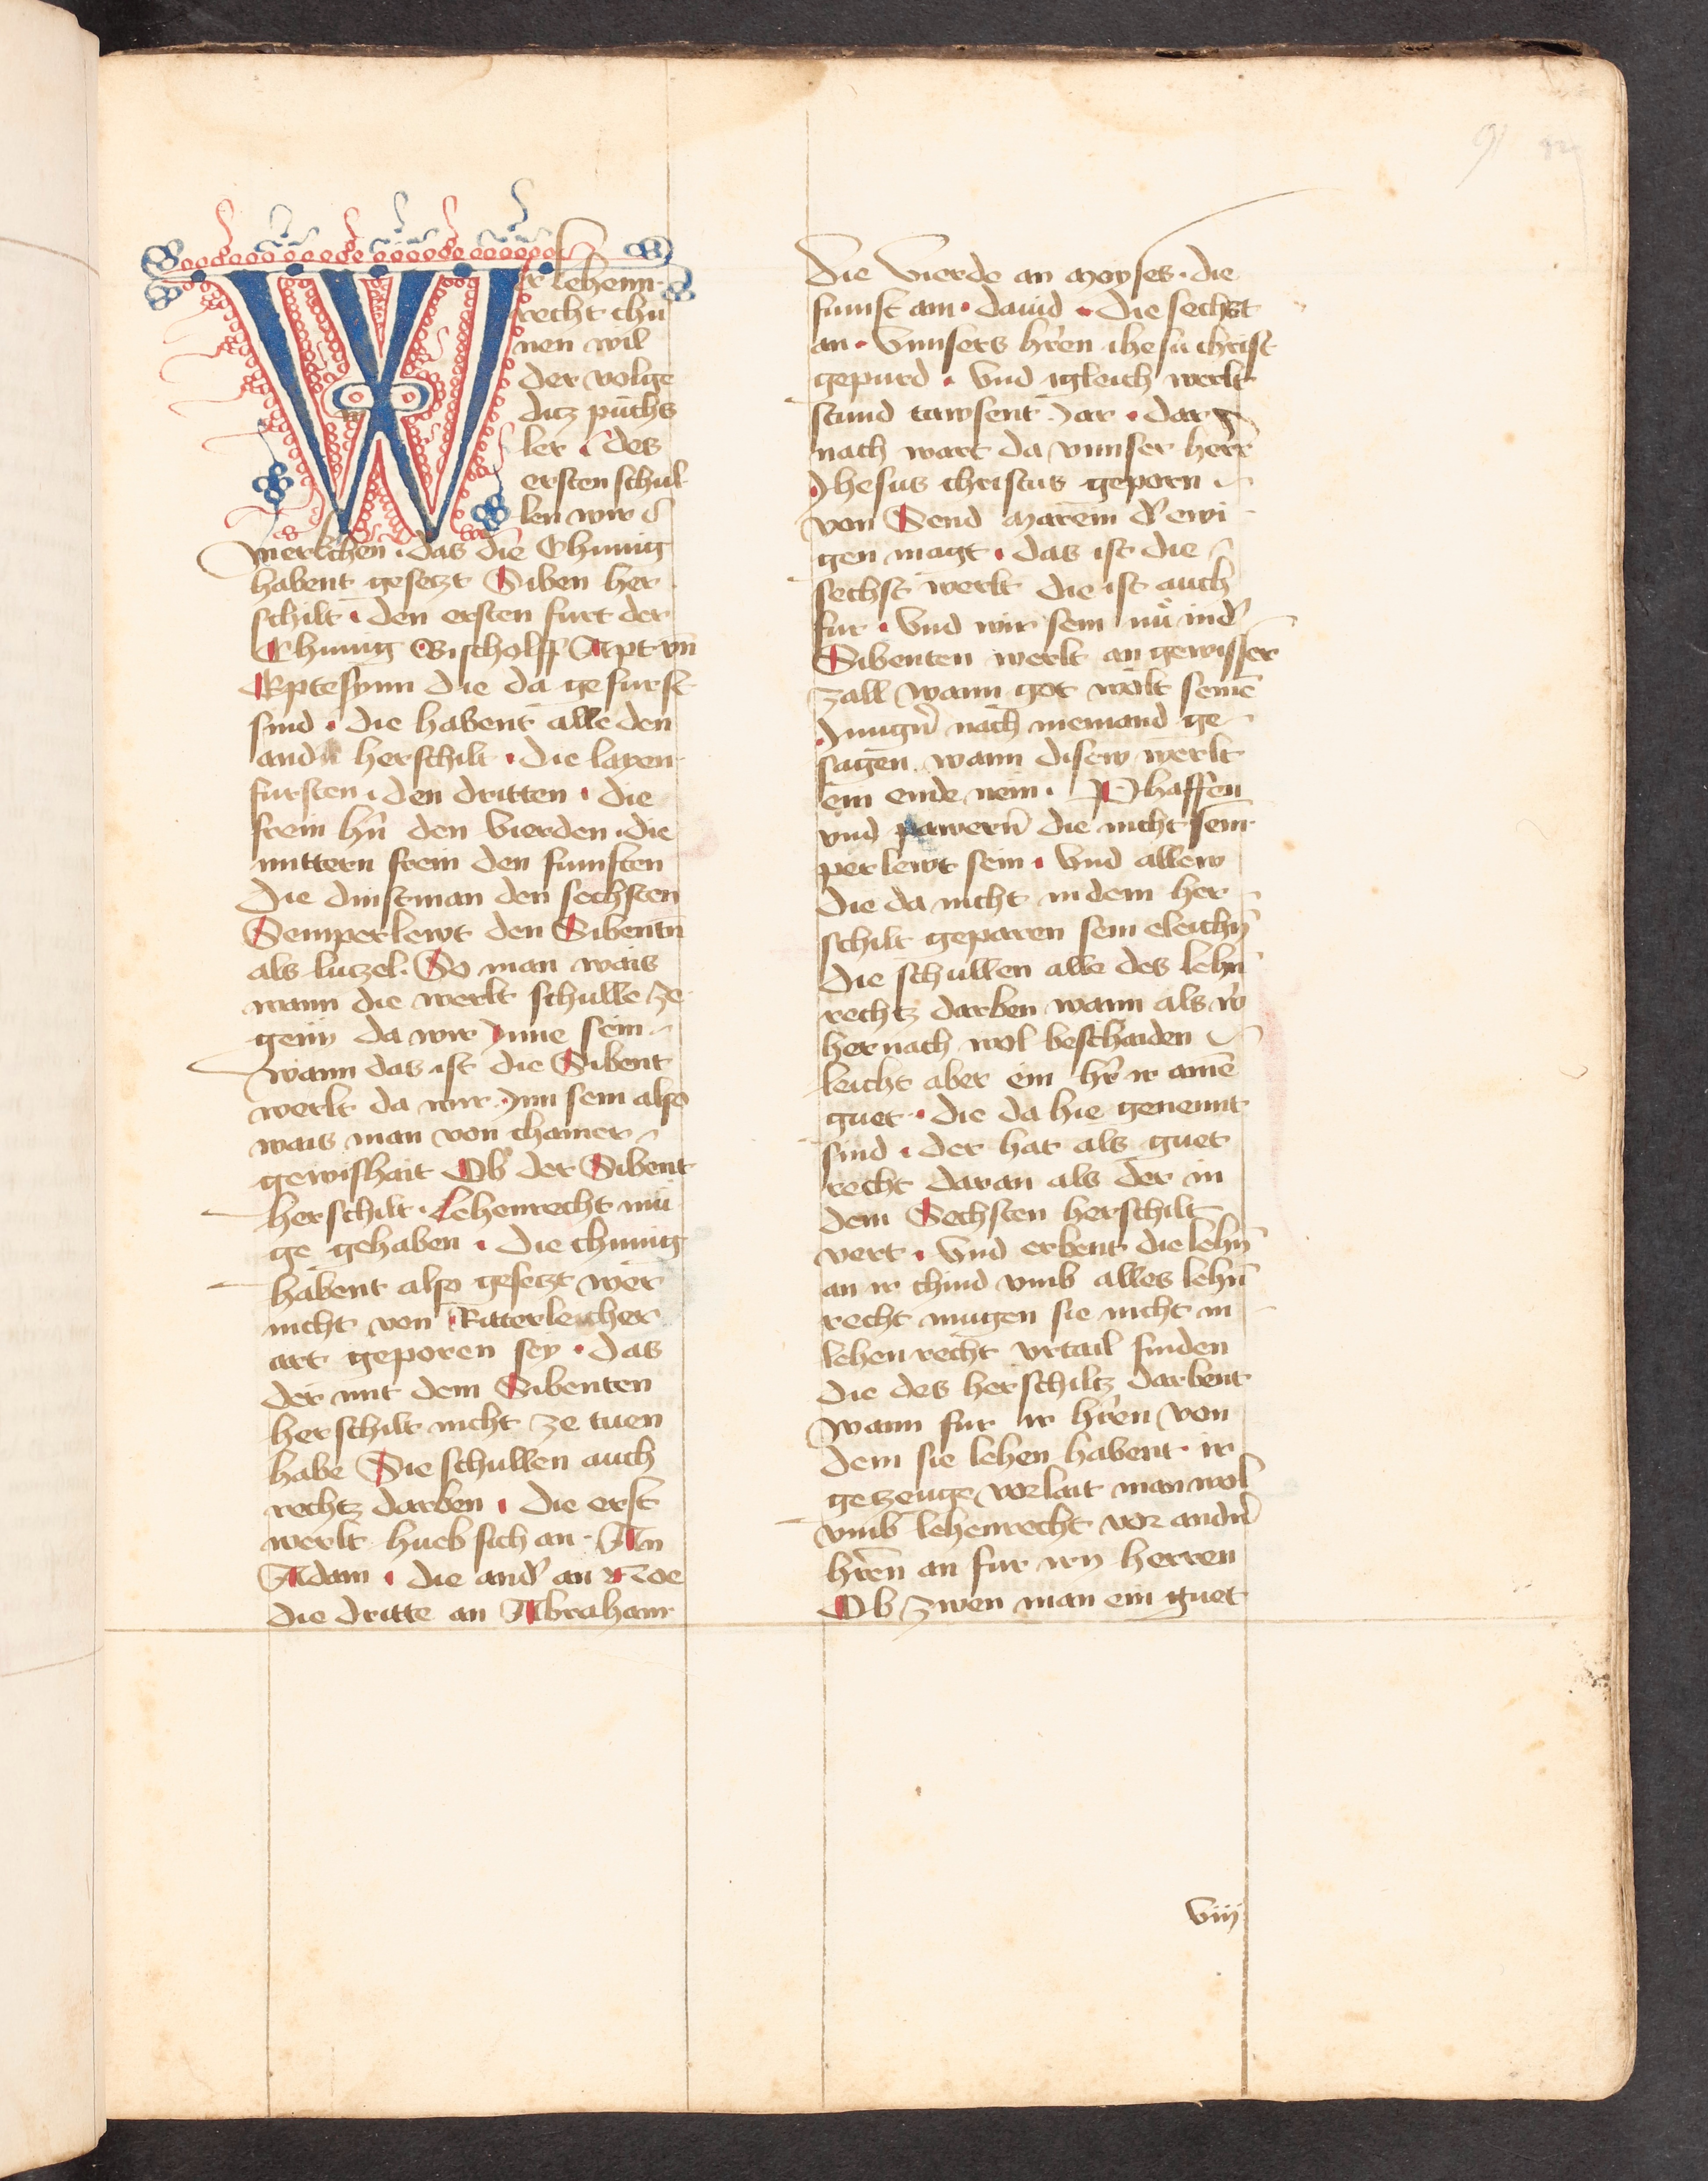 91
Wer lehenn
recht chu
nen wil
der volge
ditz puchs
ler · des
ersten schul
len wir
merkchen · das die Chunig
habent gesetzt Siben her
schilt · den ersten furt der
Chunig Bischolff Apt vn̄
Eptessynn die da gefurst
sind · die habent alle den
andn̄ herschilt · die layen
fursten · den dritten · die
frein hn̄ den vierden · die
mittern frein den funften
die dinstman den sechsten
Semperlewt den Sibentn̄
als lutzel · So man wais
wann die werlt schulle ze
genn da wir Inne sein
wann das ist die Sibent
werlt da wir Inn sein also
wais man von chainer
gewishait Ob der Sibent
herschilt · Lehenrecht mu
ge gehaben · die chunig
habent also gesetzt wer
nicht von Ritterleicher
art geporen sey · das
der mit dem Sibenten
herschilt nicht ze tuen
habe Sie schullen auch
rechtz darben · die erst
werlt hueb sich an · An
Adam · die and' an Noe
die dritte an Abraham
die vierde an Moyses · die
funft am · dauid · die sechst
an · vnnsers hr̄en ihesu christ
gepurd · vnd igleich werlt
stund tawsent Iar · dar
nach wart da vnnser herr
Ihesus christus geporn
von Send Marein d' ewi
gen magt · das ist die
sechst werlt die ist auch
fur · vnd wir sein nu in d'
Sibenten werlt an gewisser
zall wann got wolt seinē
Iungn̄ nach niemand ge
sagen wann disew werlt
ein ende nem · Phaffen
vnd pawern̄ die nicht sem
perlewt sein · vnd allew
die da nicht in dem her
schilt geparen sein eleichn̄
die schullen alle des lehn̄
rechtz darben wann als w'
hernach wol beschaiden
leicht aber ein hr̄ ir ainē
guet · die da hie genennt
sind · der hat als guet
recht daran als der in
dem Sechsten herschilt
vert · vnd erbent die lehn̄
an ir chind vmb alles lehn̄
recht mugen sie nicht in
lehenrecht vrtail finden
die des herschiltz darbent
wann fur ir hr̄en von
dem sie lehen habent ir
getzeuge vorlait man wol
vmb lehenrecht vor andn̄
hr̄en an fur irn herren
Ob zwen man ein guet
viij